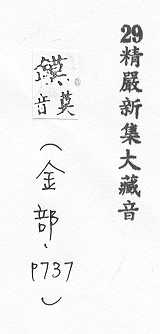 29精嚴新集大藏音
鏌莫音
（金部、
P737）